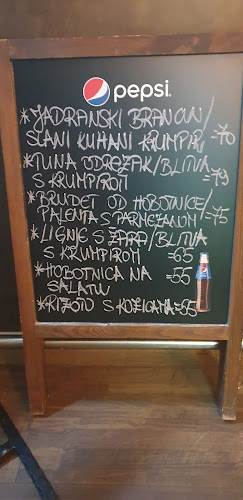 pepsi.
*JADRANSKI BRANCIN/
SLANI KUHANI KRUMPIR =70
*TUNA ODREZAK/BLITVA
S KRUMPIROM =79
*BRUDET OD HOBOTNICE/
PALENTA S PARMEZANOM =75
*LIGNJE S ŽARA/BLITVA
S KRUMPIROM =65
*HOBOTNICA NA =55
SALATU
*RIŽOTO S KOZICAMA =65